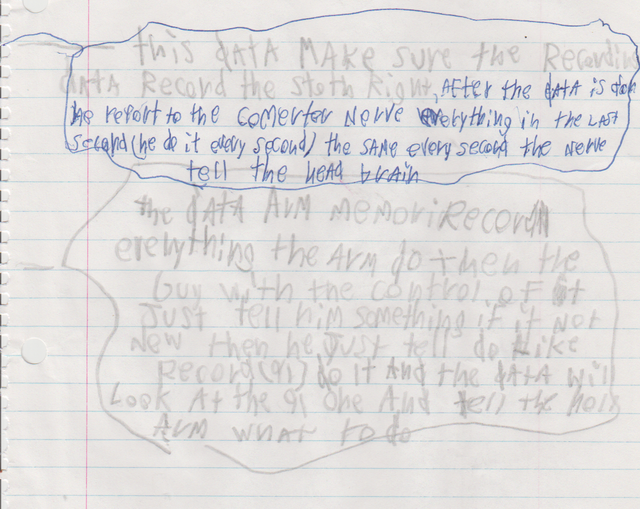 this dATA MAKE sure the Recordin
dATA Record the stoth Right, AFter the dATA is don
he report to the comerter Nerve everything in the LAST
second (he do it every second) the SAME every second the Nerve
tell the HEAd brain
the dATA ARM memoriRecord
everything the ARM do then the
Guy with the control of it
Just tell him something if it Not
New then he Just tell do Like
Record (91) do it And the dATA will
Look At the 91 one And tell the hole
ARM what to do